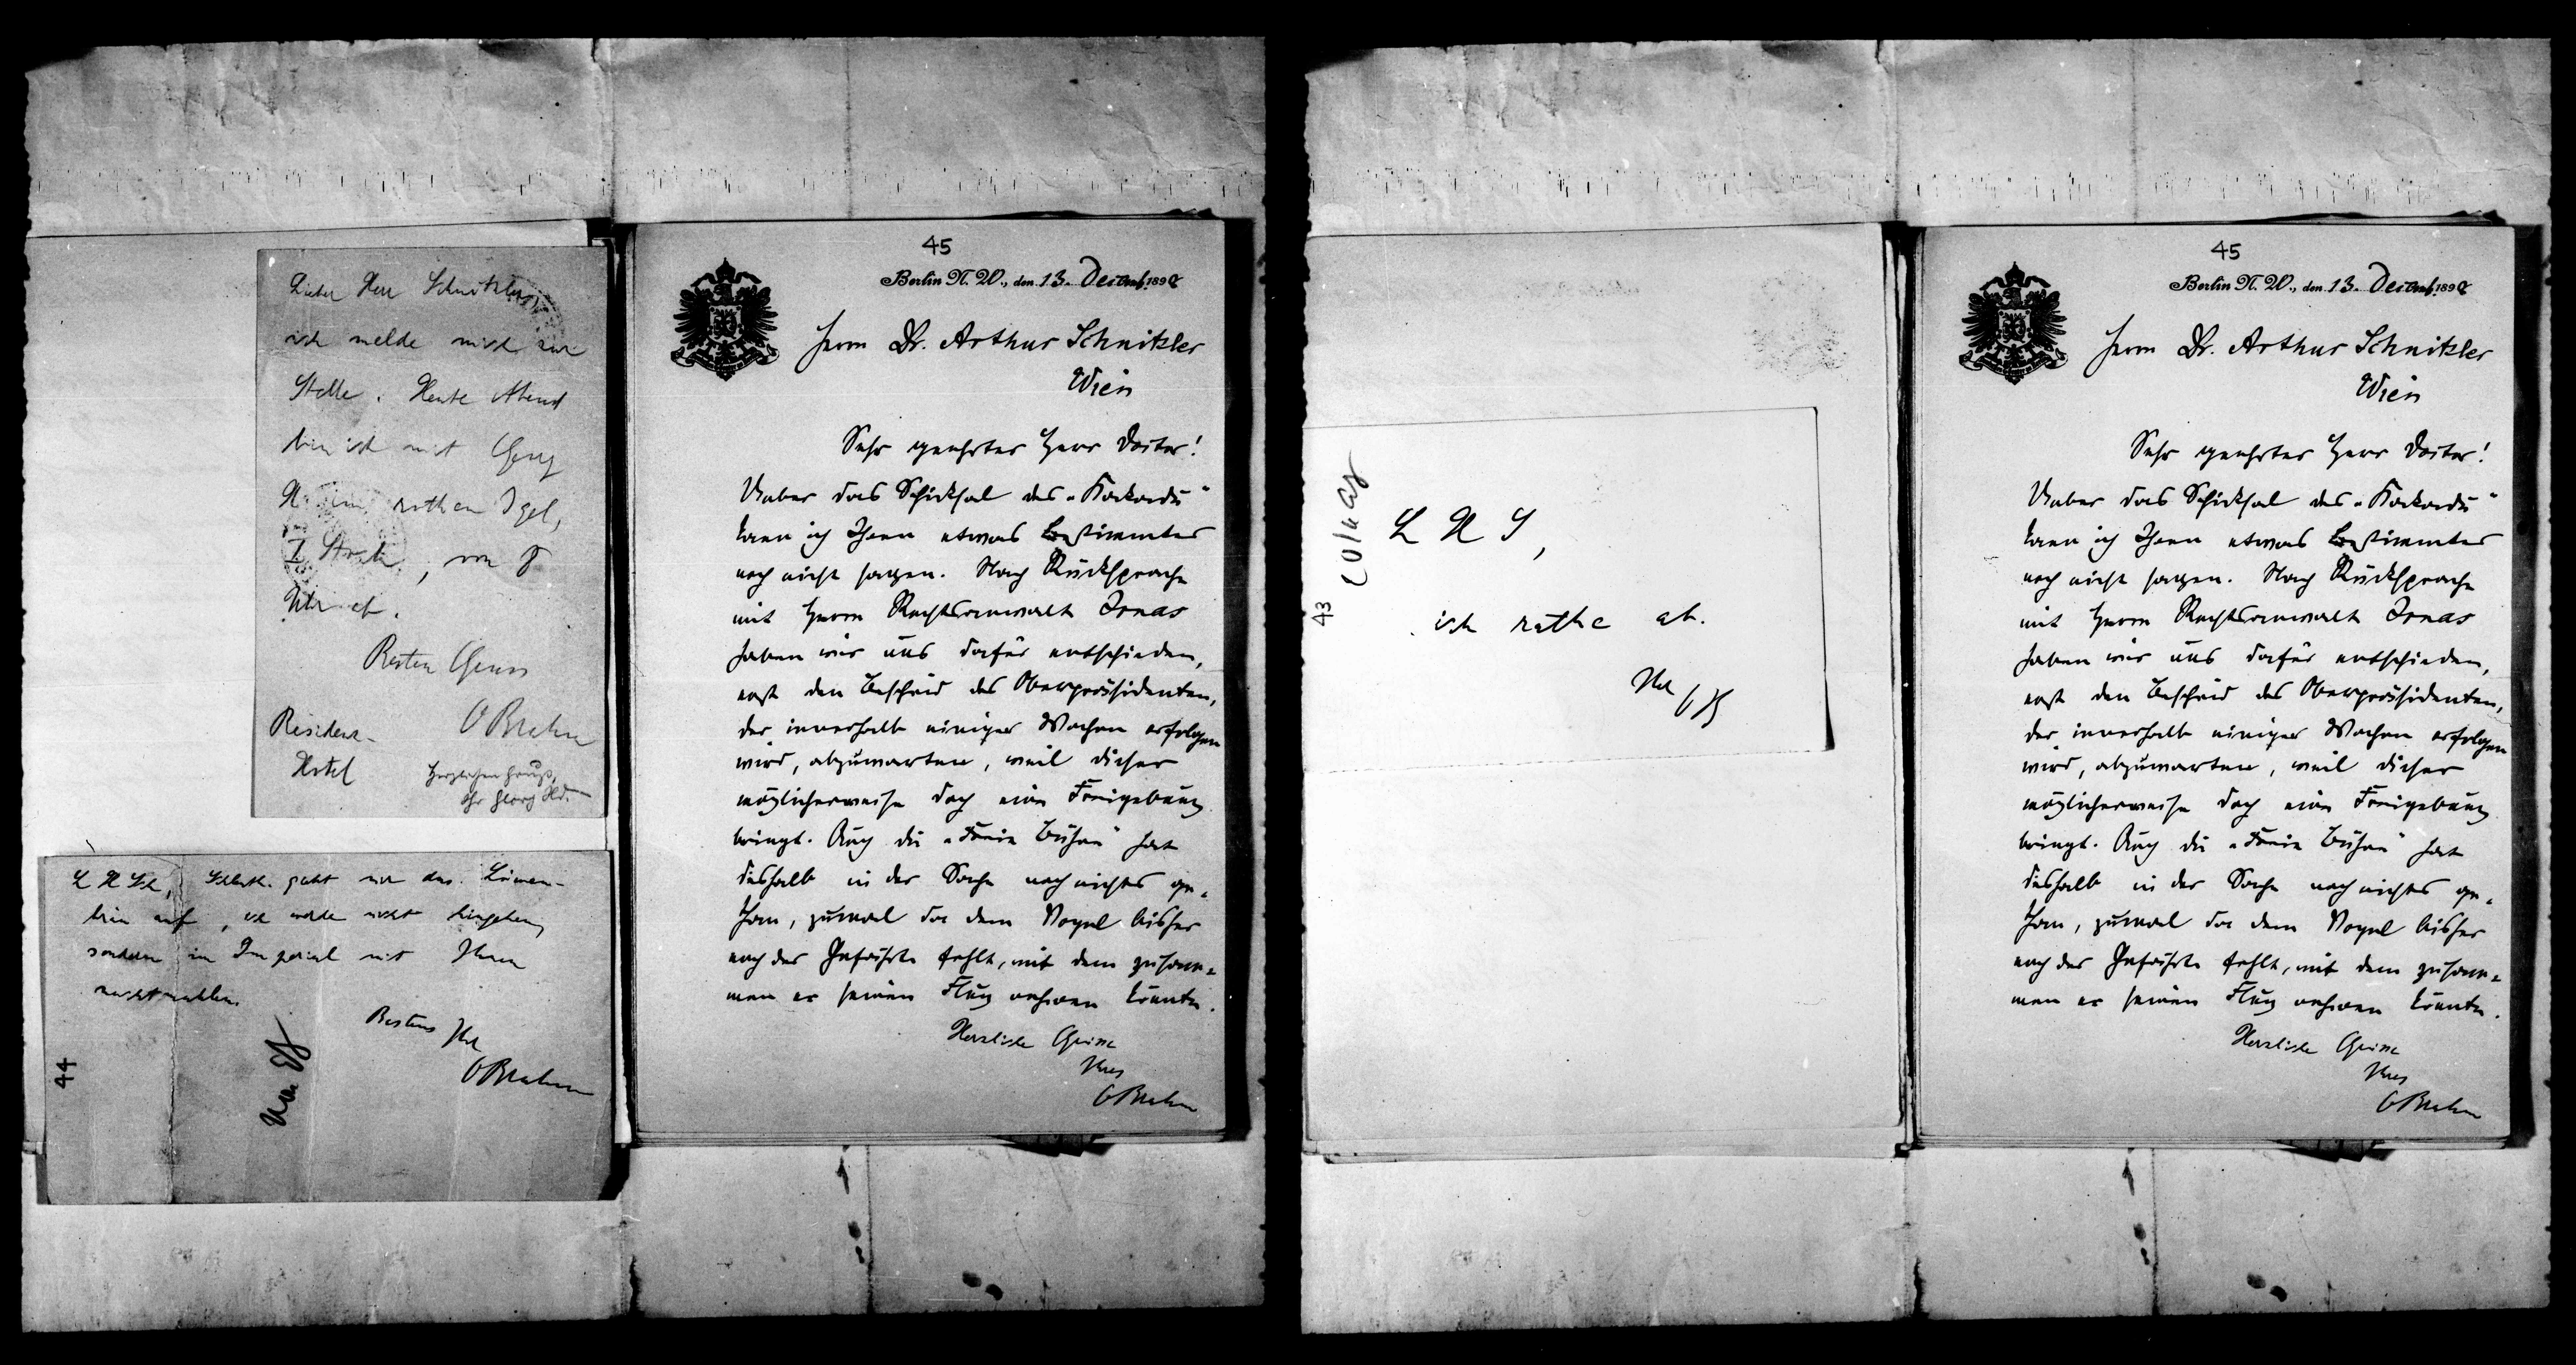 Lieber Herr Schnitzler,
ich melde mich zur
Stelle. Heute Abend
bin ich mit Georg
H. im rothen Igel,
I Stock, von 8
Uhr ab.
Besten Gruss
OBrahm
Residenz-
Hotel
Herzlichen Gruß,
Ihr Georg Hd.
L H Sch, geht mir das Löwen-
bräu auf, ich werde nicht hingehen,
sondern im Imperial mit Ihnen
nachtmahlen.
Bestens Ihr
OBrahm
44
45
Berlin N. W., den 13. Decemb. 1898
Herrn Dr. Arthur Schnitzler
Wien
Sehr geehrter Herr Doctor!
Ueber das Schicksal des „Kakadu“
kann ich Ihnen etwas Bestimmtes
noch nicht sagen. Nach Rücksprache
mit Herrn Rechtsanwalt Jonas
haben wir uns dafür entschieden,
erst den Bescheid des Oberpräsidenten,
der innerhalb einiger Wochen erfolgen
wird, abzuwarten, weil dieser
möglicherweise doch eine Freigebung
bringt. Auch die „Freie Bühne“ hat
deshalb in der Sache noch nichts ge-
than, zumal da dem Vogel bisher
noch der Gefährte fehlt, mit dem zusam-
men er seinen Flug nehmen könnte.
Herzliche Grüsse
Ihres
OBrahm
43
L H S,
ich rathe ab.
Ihr
45
Berlin N. W., den 13. Decemb. 1898
Herrn Dr. Arthur Schnitzler
Wien
Sehr geehrter Herr Doctor!
Ueber das Schicksal des „Kakadu“
kann ich Ihnen etwas Bestimmtes
noch nicht sagen. Nach Rücksprache
mit Herrn Rechtsanwalt Jonas
haben wir uns dafür entschieden,
erst den Bescheid des Oberpräsidenten,
der innerhalb einiger Wochen erfolgen
wird, abzuwarten, weil dieser
möglicherweise doch eine Freigebung
bringt. Auch die „Freie Bühne“ hat
deshalb in der Sache noch nichts ge-
than, zumal da dem Vogel bisher
noch der Gefährte fehlt, mit dem zusam-
men er seinen Flug nehmen könnte.
Herzliche Grüsse
Ihres
OBrahm